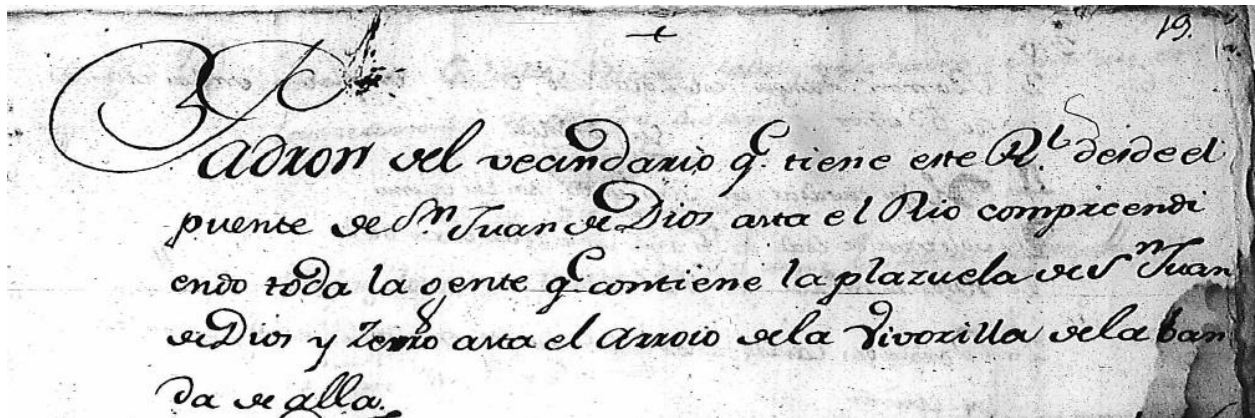 19.
Padron del vecindario q.e tiene este R.l desde el
puente de S.n Juan de Dios asta el Rio comprcendi
endo toda la gente q.e contiene la plazuela de S.n Juan
de Dios y Zerro asta el Arroio de la Vivorilla de la ban
da de alla.